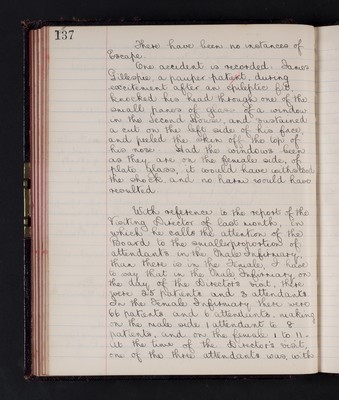 137
There have been no instances of
Escape.
One accident is recorded: James
Gillespie, a pauper patient, during
excitement after an epileptic fit,
knocked his head through one of the
small panes of glass of a window
in the Second House, and sustained
a cut on the left side of his face,
and peeled the skin off the top of
his nose. Had the windows been
as they are on the female side, of
plate glass, it would have withstood
the shock and no harm would have
resulted.
With reference to the report of the
Visiting Director of last month, in
which he calls the attention of the
Board to the smaller proportion of
attendants in the Male Infirmary,
than there is in the Female, I have
to say that in the Male Infirmary on
the day of the Director's visit, there
were 25 patients and 3 attendants.
In the Female Infirmary there were
66 patients and 6 attendants, making
on the male side 1 attendant to 8
patients, and on the female 1 to 11.
At the time of the Director's visit,
one of the three attendants was, with